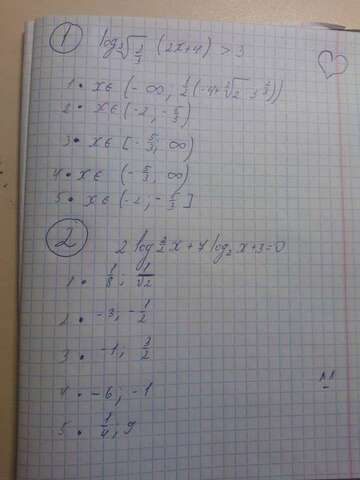 1 log ∛(2/3) (2x+4) > 3
1 • x ∈ (-∞; 1/2(-4+∛2 · 3^(2/3)))
2 • x ∈ (-2, -5/3)
3 • x ∈ [-5/3; ∞)
4 • x ∈ (-5/3, ∞)
5 • x ∈ (-2, -5/3]
2 2 log²₂ x + 7 log₂ x + 3 = 0
1 • 1/8; 1/√2
2 • -3; -1/2
3 • -1; 3/2
4 • -6; -1
5 • 1/4; 9